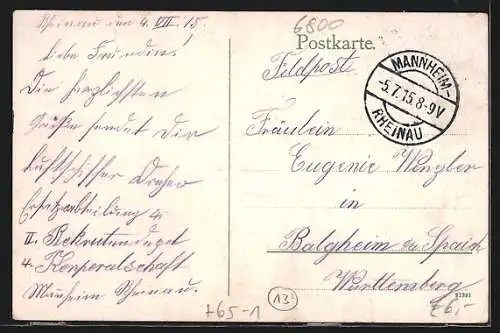 Rheinau den 4. VII. 15.
Liebe Freundin!
Die herzlichsten
Grüße sendet Dir
Luftschiffer
Ersatzabteilung 4.
II. Rekrutendepot
4. Korporalschaft
Manheim Rheinau.
6800
Postkarte.
Feldpost
MANNHEIM-
-5.7.15.8-9V
RHEINAU
Fräulein
Eugenie Wenzler
in
Balgheim
Württemberg
13
+65-1
£6,-